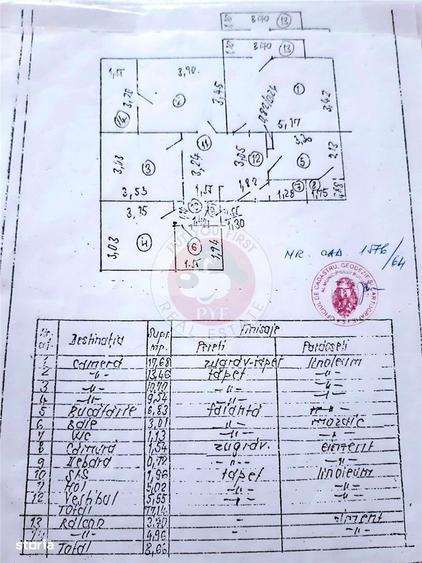 3,70 (13)
3,70 (13)
1,57
3,90
3,70
2
3,45
1
3,42
5,17
3,28
3
3,53
11
3,24
3,05
12
5
2,13
1,57
1,82
1,28
1,75
3,75
3,03
4
6
1,55
1,94
1,30
NR. CAD 1576/64
Destinația Supr. mp. Finisaje
Pereți Pardoseli
1 Cameră 17,68 zugrav-tapet linoleum
2 -"- 13,46 tapet -"-
3 -"- -"- -"-
4 -"- 9,54 -"- -"-
5 Bucătărie 6,83 faianță -"-
6 Baie 3,01 -"- mozaic
7 WC 1,13 -"- -"-
8 Cămară 1,54 zugrav. ciment
9 Debara 0,72 -"- -"-
10 SAS 1,96 tapet linoleum
11 Hol 5,02 -"- -"-
12 Vestibul 5,55 -"- -"-
Total
13 Balcon 3,70 - ciment
-"- 4,96 - -"-
Total 8,66
PYF
REAL ESTATE
storia